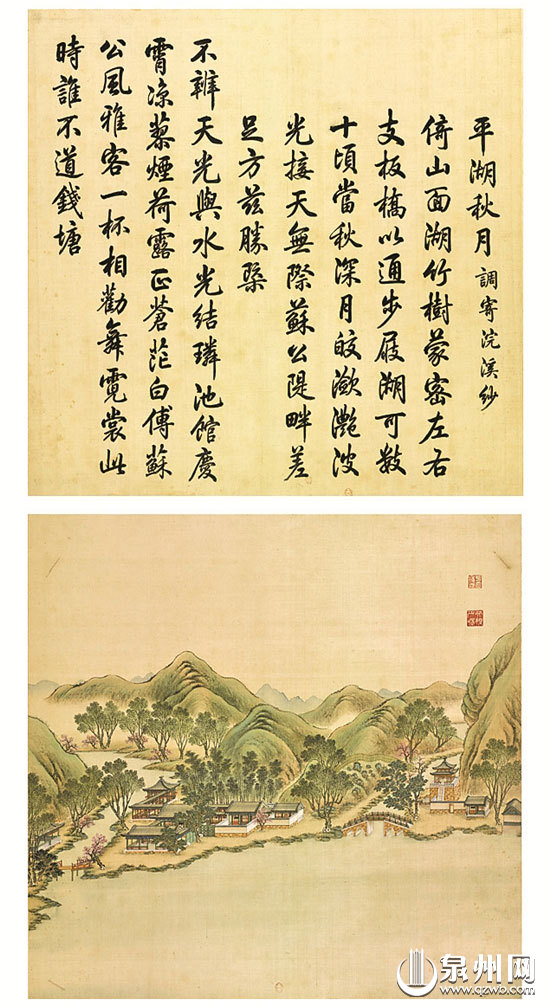 平湖秋月 調寄浣溪紗
倚山面湖竹樹蒙密左右
支板橋以通步屐湖可数
十頃當秋深月皎瀲灧波
光接天無際蘇公隄畔差
足方茲勝槩
不辨天光與水光結璘池館慶
霄凉蓼煙荷露正蒼茫白傅蘇
公風雅客一杯相勸舞霓裳此
時誰不道錢塘
泉州网
www.qzwb.com